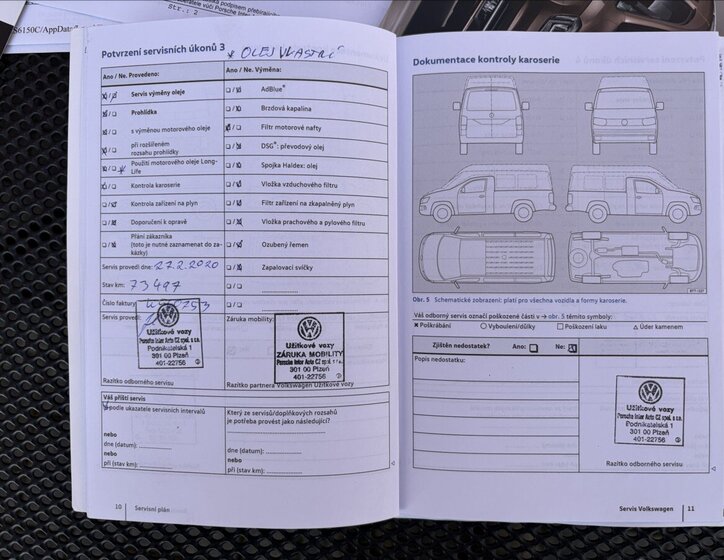 Str.: 2
S6150C/AppData
Potvrzení servisních úkonů 3
* OLEJ VLASTNÍ
Ano / Ne. Provedeno:
Servis výměny oleje
Prohlídka
s výměnou motorového oleje
při rozšířeném
rozsahu prohlídky
Použití motorového oleje Long-
Life
Kontrola karoserie
Kontrola zařízení na plyn
Doporučení k opravě
Přání zákazníka
(toto je nutné zaznamenat do za-
kázky)
Servis provedl dne: 27.2.2020
Stav km: 73497
Číslo faktury:
Servis provedl
Užitkové vozy
Porsche Inter Auto CZ spol. s r.o.
Podnikatelská 1
301 00 Plzeň
401-22756
Razítko odborného servisu
Ano / Ne. Výměna:
AdBlue®
Brzdová kapalina
Filtr motorové nafty
DSG®: převodový olej
Spojka Haldex: olej
Vložka vzduchového filtru
Filtr zařízení na zkapalněný plyn
Vložka prachového a pylového filtru
Ozubený řemen
Zapalovací svíčky
Záruka mobility:
Užitkové vozy
ZÁRUKA MOBILITY
Porsche Inter Auto CZ spol. s r.o.
301 00 Plzeň
401-22756
Razítko partnera Volkswagen Užitkové vozy
Váš příští servis
podle ukazatele servisních intervalů
nebo
dne (datum):
nebo
při (stav km):
Který ze servisů/doplňkových rozsahů
je potřeba provést jako následující?
dne (datum):
nebo
při (stav km):
10 Servisní plán
Dokumentace kontroly karoserie
Obr. 5 Schematické zobrazení: platí pro všechna vozidla a formy karoserie.
Váš odborný servis označí poškozené části v → obr. 5 těmito symboly:
Poškrábání
Vyboulení/důlky
Poškození laku
Úder kamenem
Zjištěn nedostatek? Ano: Ne:
Popis nedostatku:
Užitkové vozy
Porsche Inter Auto CZ spol. s r.o.
Podnikatelská 1
301 00 Plzeň
401-22756
Razítko odborného servisu
Servis Volkswagen 11